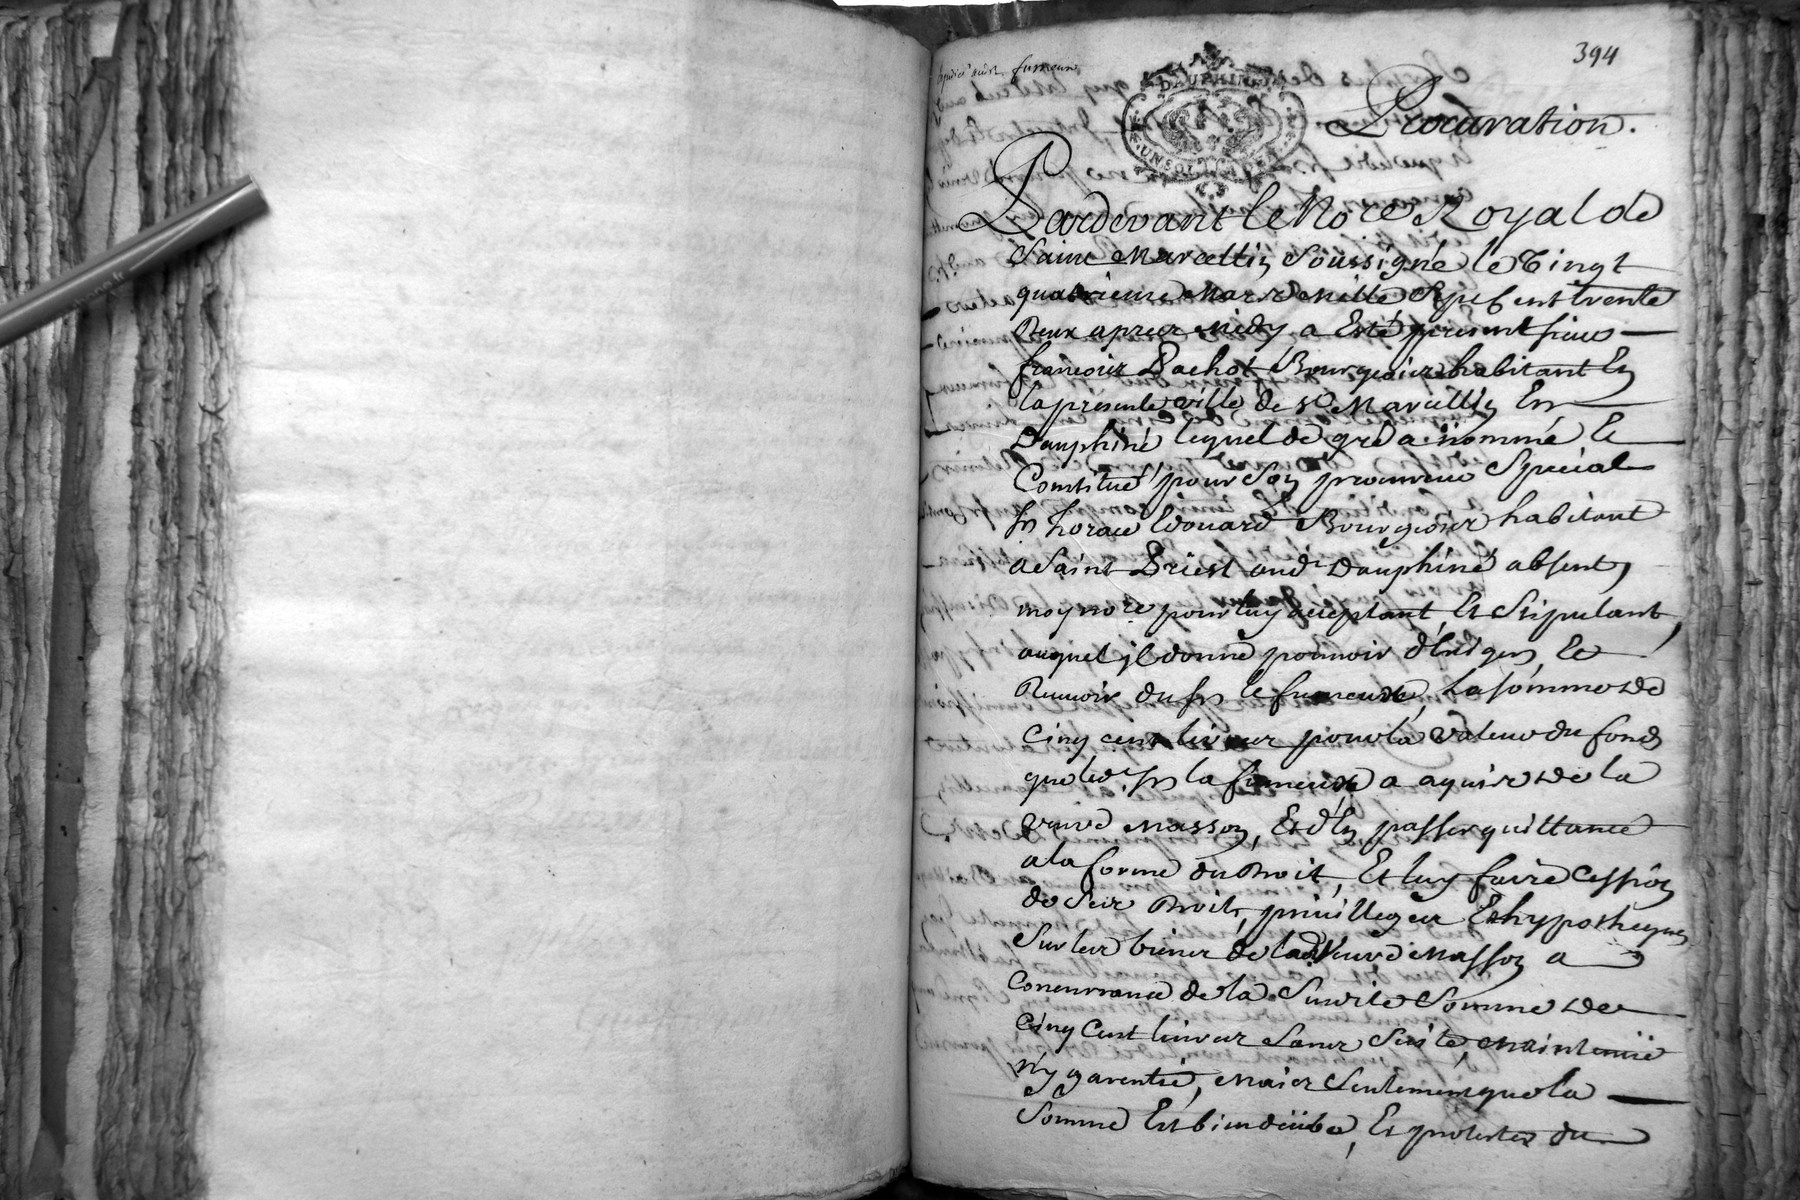 394
DAUPHINE
UN SOL
Procuration.
Pardevant le No.re Royal de
Saint Marcellin Soussigné le Vingt
quatrieme Mars Mille Sept Cent trente
Deux apres Midy a Esté present sieur
françois Bachot Bourgeois habitant En
la presente ville de St Marcellin En
Dauphiné lequel de gré a nommé Et
Constitué pour Son procureur Special
sr horace Edouard Bourgeois habitant
a Saint Priest audt Dauphiné absent
moy no.re pour luy acceptant Et Stipulant,
auquel jl donne pouvoir d'Exiger, Et
Recevoir du sr le fumeux, La somme de
Cinq cent livres pour la Valeur du fond
que led. sr la fumeux a aquis de la
veuve Masson, Et d'En passer quittance
a la forme du Droit, Et luy faire Cession
de Ses Droits, privilleges Et hypotheques
Sur les biens de lad. Veuve Masson a
Concurrance de la Susdite Somme de
Cinq Cent livres Sans Suite, Maintenüe
n'y garentie, Mais Seulement que la
Somme Est bien düe, Et protester du